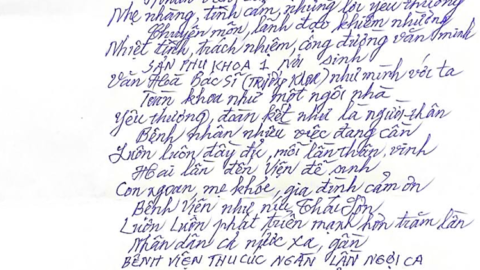 Mẹ nhàng, tình cảm, những lời yêu thương
Chuyên môn, lãnh đạo khiêm nhường
Nhiệt tình, trách nhiệm, công đường văn minh
SẢN THU KHOA 1 Nơi sinh
Văn Hoá Bác Sĩ (Trưởng khoa) như mình với ta
Toàn khoa như một ngôi nhà
Yêu thương, đoàn kết như là người thân
Bệnh nhân nhiều việc đang cần
Luôn luôn đầy đủ, mỗi lần thăm, vinh
Hai lần đến viện để sinh
Con ngoan, mẹ khỏe, gia đình cảm ơn
Bệnh viện như núi Thái Sơn
Luôn Luôn phát triển mạnh hơn trăm lần
Nhân dân cả nước xa, gần
BỆNH VIỆN THU CÚC NGÀN LẦN NGỢI CA